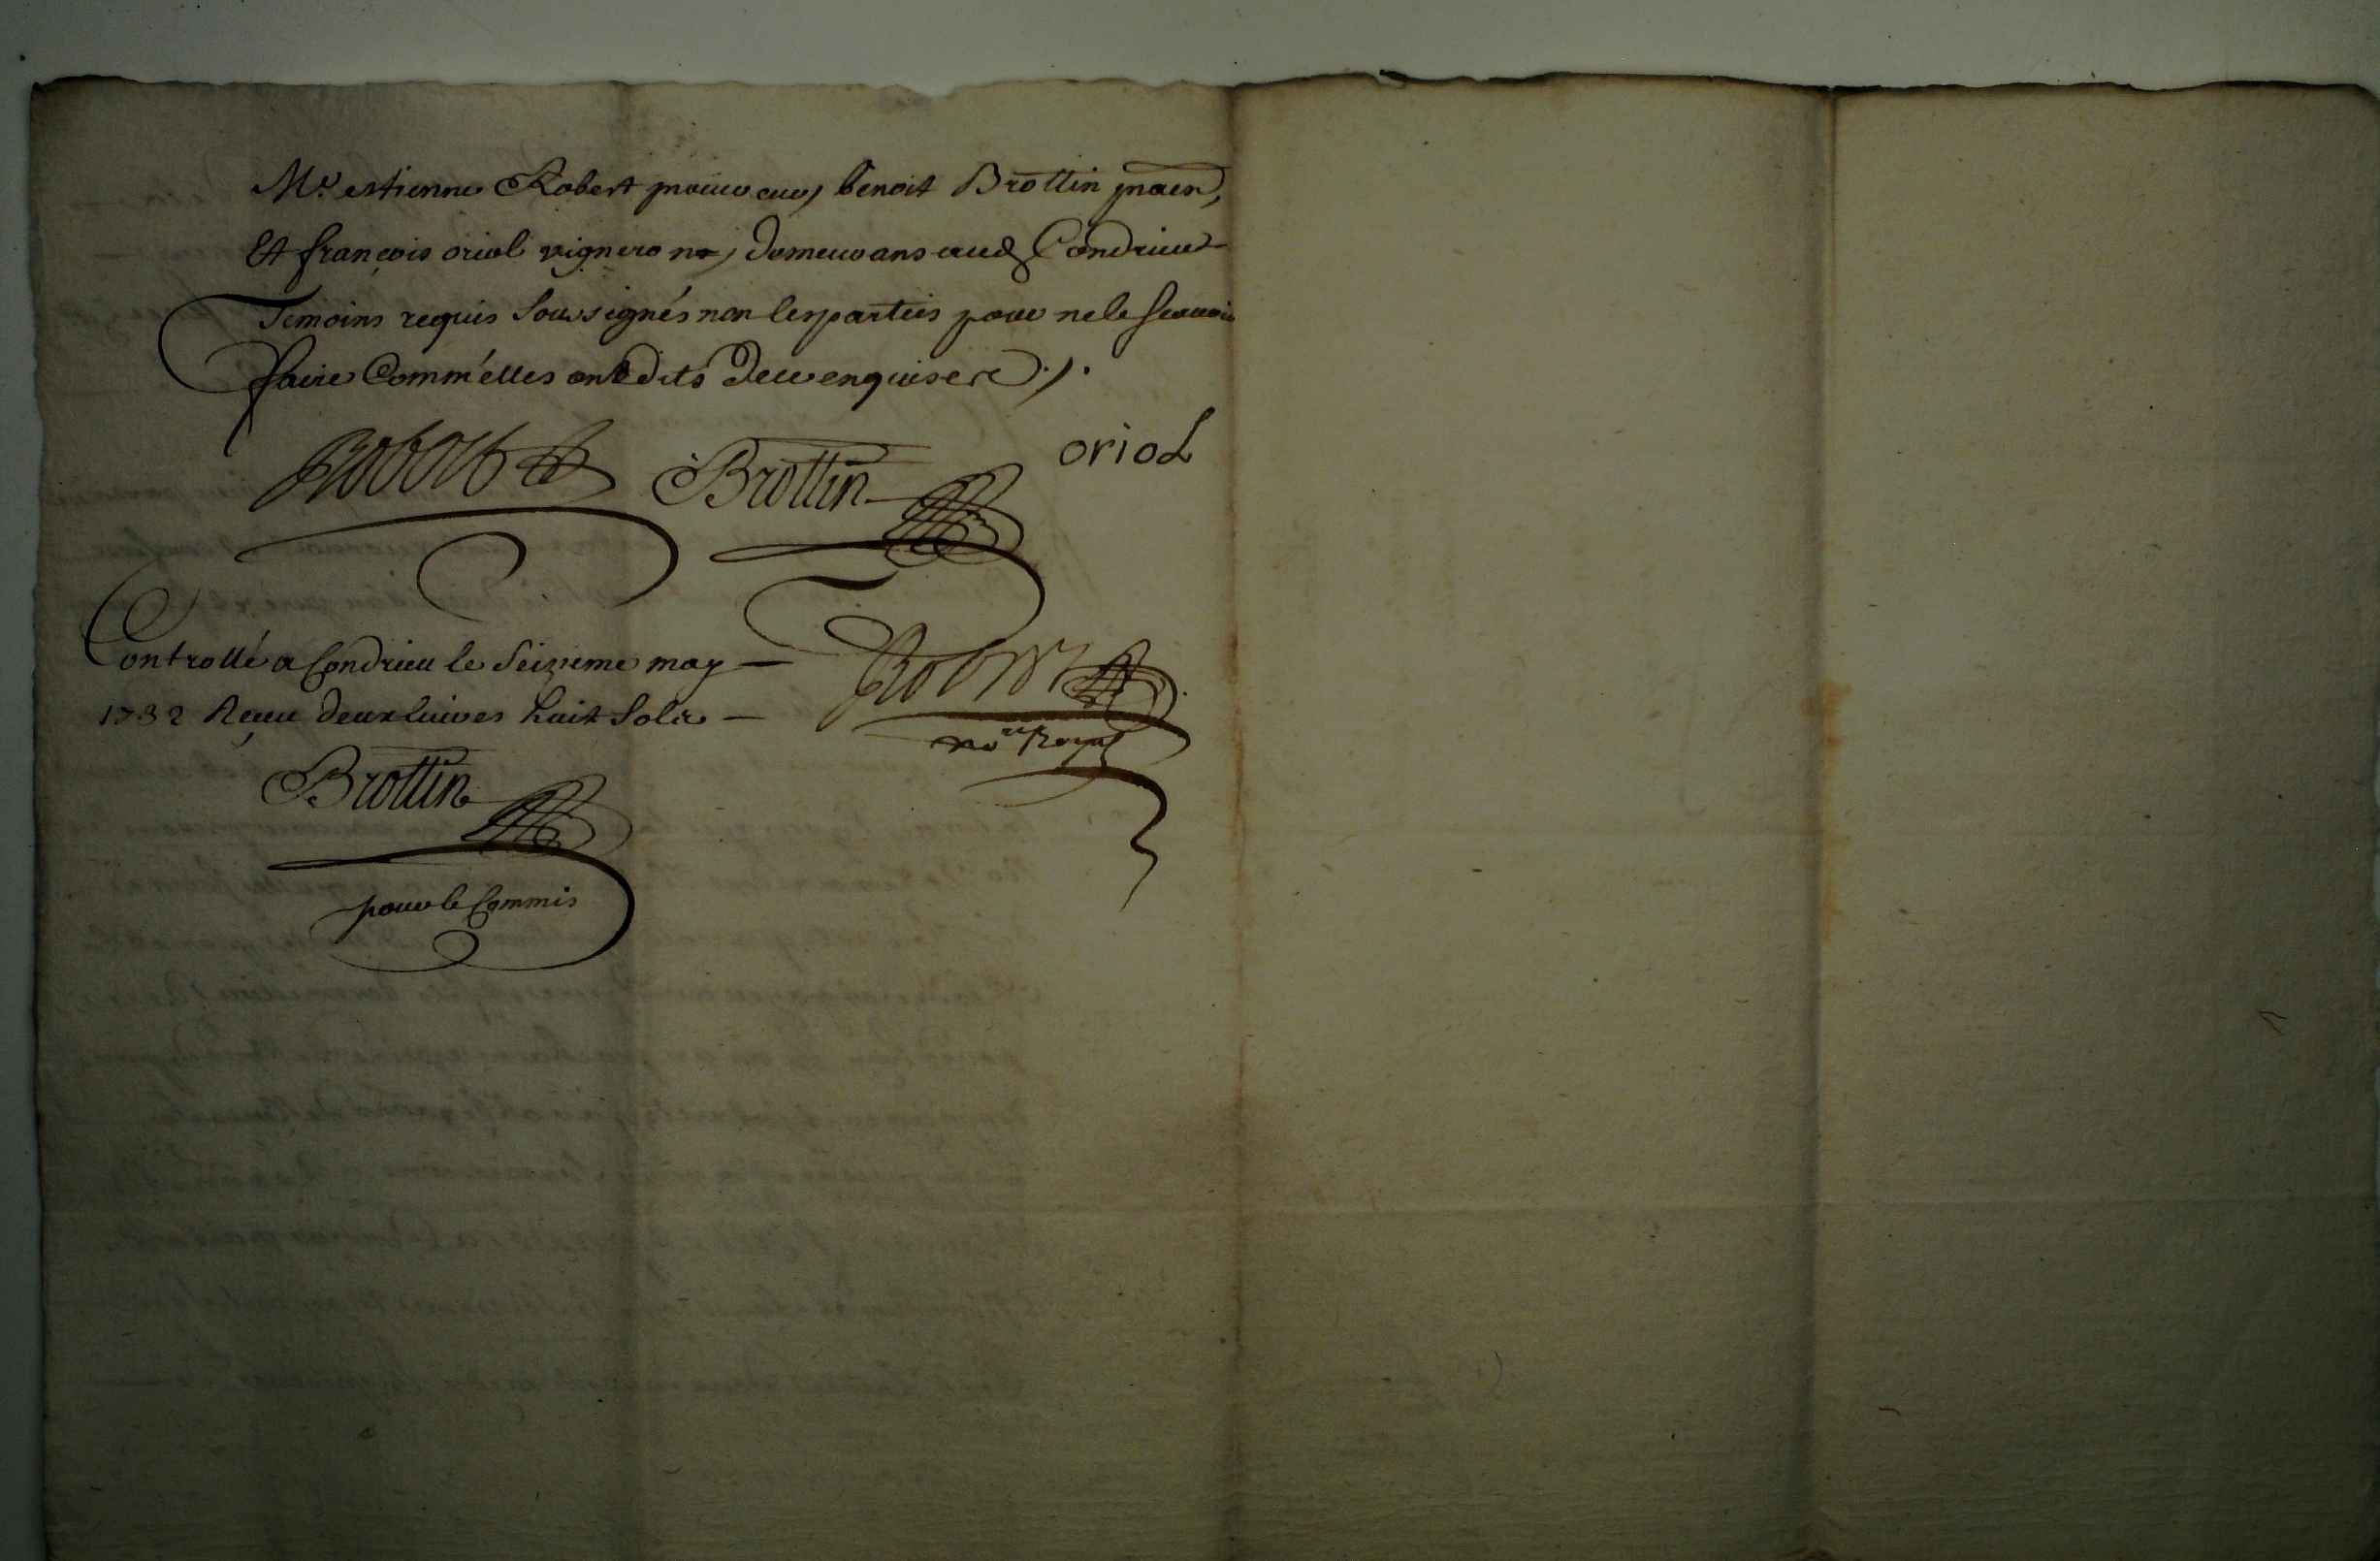 Mr. estienne Robert procureur, benoit Brottin praen,
Et françois oriol vigneron, demeurans aud Condrieu
Temoins requis Soussignés non les parties pour ne le scauoir
faire Comm'elles ont dits De ce enquises
Robert
Brottin
oriol
Controllé a Condrieu le Seizieme may
1732 Reçu deux livres huit sols
Robert
nore Royal
Brottin
pour le Commis